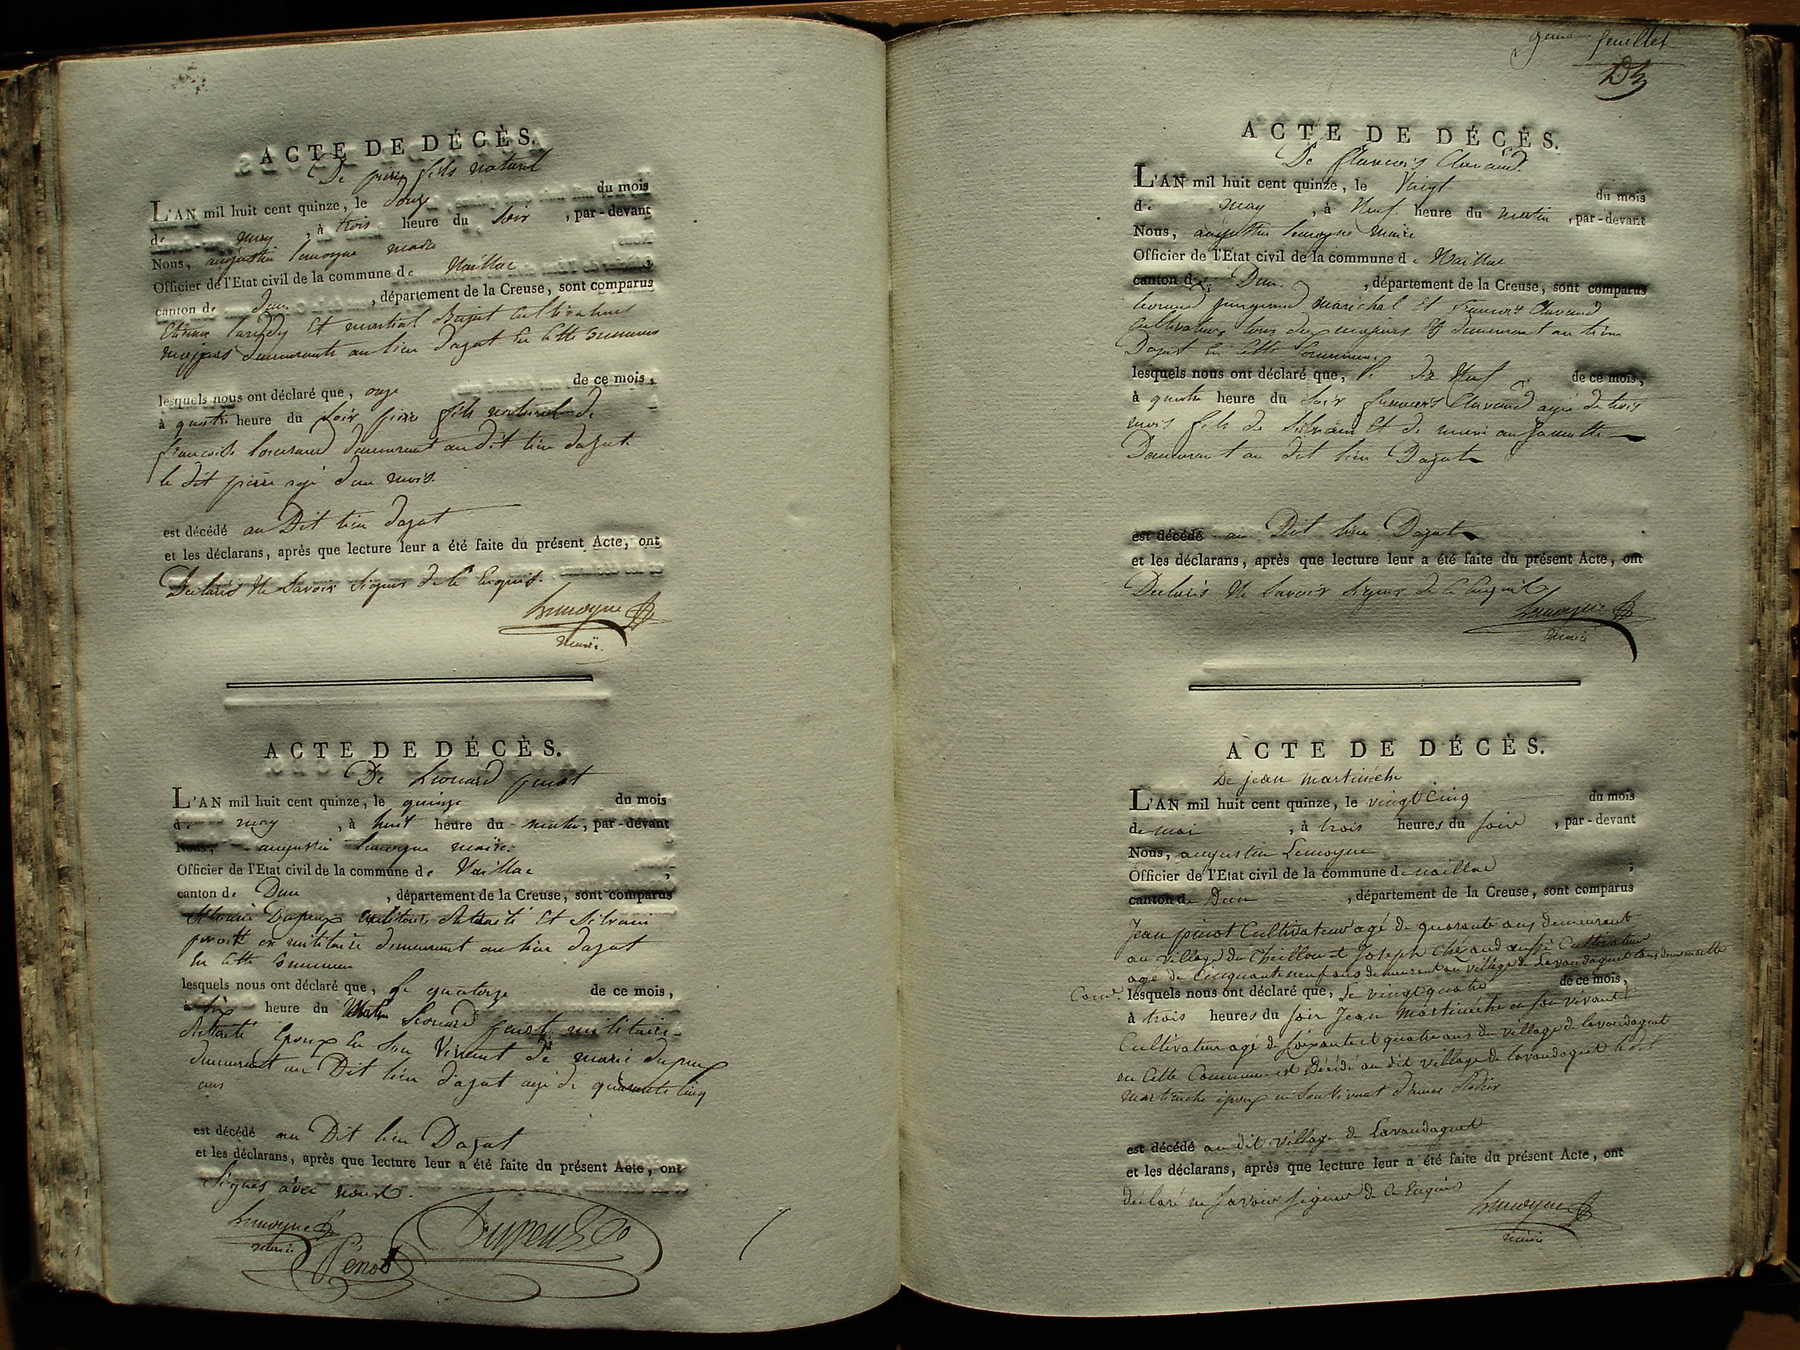 ACTE DE DÉCÈS.
De pierre fils naturel
L'AN mil huit cent quinze, le douze du mois
de may, à trois heure du soir, par-devant
Nous, augustin Lemoyne maire
Officier de l'Etat civil de la commune de Naillac
canton de Dun, département de la Creuse, sont comparus
et martial cultivateurs
majeurs demeurants au lieu dazat en cette commune
lesquels nous ont déclaré que, onze de ce mois,
à quatre heure du soir pierre fils naturel de
françoise demeurant audit lieu dazat
le dit pierre agé dun mois.
est décédé au Dit lieu dazat
et les déclarans, après que lecture leur a été faite du présent Acte, ont
Declarés Ne Savoir Signer de ce Enquis.
Lemoyne
maire
ACTE DE DÉCÈS.
De Leonard penot
L'AN mil huit cent quinze, le quinze du mois
de may, à huit heure du matin, par-devant
Nous, augustin Lemoyne maire.
Officier de l'Etat civil de la commune de Naillac
canton de Dun, département de la Creuse, sont comparus
Dupeux militaire Retraité Et Silvain
militaire demeurant au lieu dazat
En cette commune
lesquels nous ont déclaré que, le quatorze de ce mois,
à heure du Matin Leonard penot militaire
Retraité Epoux En Son Vivant de marie dupeux
demeurant au Dit lieu d'azat agé de quarante cinq
ans
est décédé au Dit lieu Dazat
et les déclarans, après que lecture leur a été faite du présent Acte, ont
Signés avec nous.
Lemoyne
maire
Pénot
Dupeux
9eme feuillet
ACTE DE DÉCÈS.
De françois Clavaud
L'AN mil huit cent quinze, le Vingt du mois
de may, à Neuf heure du matin, par-devant
Nous, augustin Lemoyne maire
Officier de l'Etat civil de la commune de Naillac
canton de Dun, département de la Creuse, sont comparus
maréchal Et Clavaud
Cultivateur tous deux majeurs Et demeurant au lieu
Dazat En Cette Commune
lesquels nous ont déclaré que, le Dix Neuf de ce mois,
à quatre heure du soir françois Clavaud agé de trois
mois fils de Silvain Et de marie
Demeurant au dit lieu Dazat
est décédé au Dit lieu Dazat
et les déclarans, après que lecture leur a été faite du présent Acte, ont
Declarés Ne Savoir Signer de ce Enquis
Lemoyne
maire
ACTE DE DÉCÈS.
De jean martinèche
L'AN mil huit cent quinze, le vingt Cinq du mois
de mai, à trois heures du soir, par-devant
Nous, augustin Lemoyne
Officier de l'Etat civil de la commune de naillac
canton de Dun, département de la Creuse, sont comparus
Jean pinot Cultivateur agé de quarante ans demeurant
au village du Cheillou et Joseph Chéraud aussi Cultivateur
agé de Cinquante neuf ans demeurant au village de Lavaudaguet
lesquels nous ont déclaré que, Le vingt quatre de ce mois,
à trois heures du soir Jean Martinèche en son vivant
Cultivateur agé de soixante et quatre ans du village de lavaudaguet
en Cette Commune est Décédé au dit village de lavaudaguet ledit
martineche époux en Son Vivant
est décédé au dit village de Lavaudaguet
et les déclarans, après que lecture leur a été faite du présent Acte, ont
déclaré ne savoir signer de Ce Enquis
Lemoyne
maire